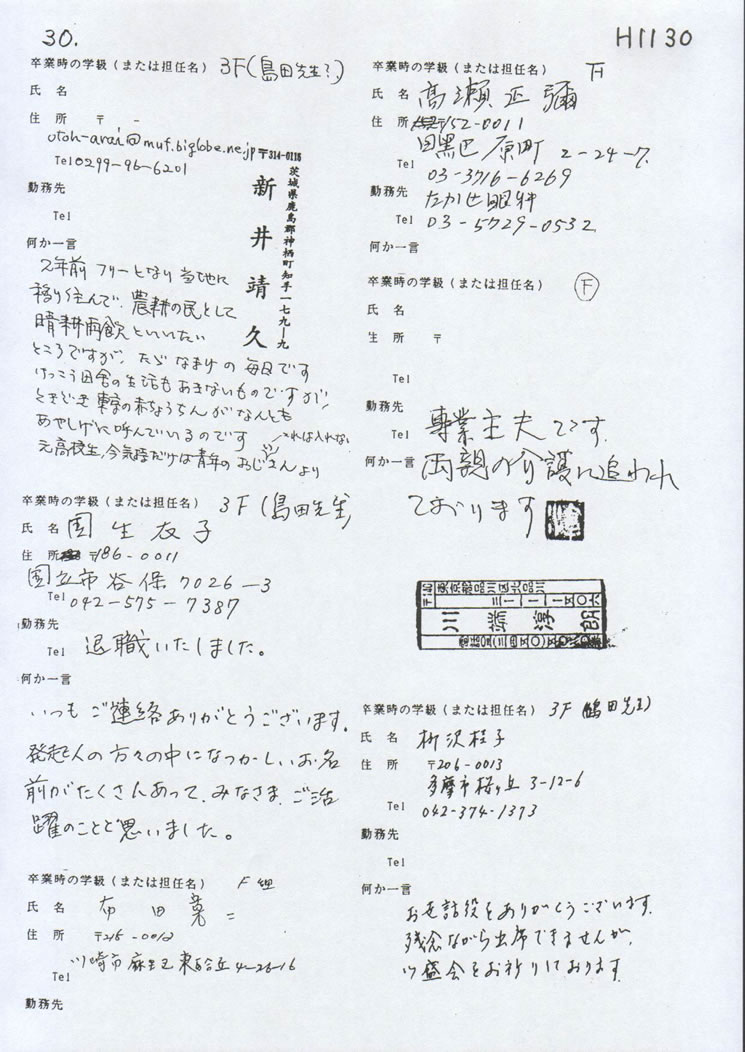 30.
H1130
卒業時の学級(または担任名) 3F(島田先生?)
氏 名
住 所 〒 -
otoh-arai@muf.biglobe.ne.jp
〒314-0116
茨城県鹿島郡神栖町知手一七九―九
新井靖久
Tel 0299-96-6201
勤務先
Tel
何か一言
2年前 フリーとなり 当地に
移り住んで、農耕の民として
晴耕雨飲といいたい
ところですが、ただ なまけの 毎日です
けっこう田舎の生活もあきないものですが、
ときどき 東京の赤ちょうちん がなんとも
あやしげに呼んでいるのです
元高校生、今気持だけは青年の おじさんより
卒業時の学級(または担任名) 3F(島田先生)
氏 名 園生衣子
住 所 〒186-0011
国立市谷保7026-3
Tel 042-575-7387
勤務先
Tel 退職いたしました。
何か一言
いつも ご連絡ありがとうございます。
発起人の方々の中になつかしいお名
前がたくさんあって、みなさま、ご活
躍のことと思いました。
卒業時の学級(または担任名) F組
氏 名 布田
住 所 〒215-0012
川崎市麻生区東百合丘4-26-16
Tel
勤務先
卒業時の学級(または担任名) F
氏 名 高瀬正彌
住 所 〒152-0011
目黒区原町 2-24-7
Tel 03-3716-6269
勤務先 たかせ眼科
Tel 03-5729-0532
何か一言
卒業時の学級(または担任名) F
氏 名
住 所 〒
Tel
勤務先
Tel 専業主夫です。
何か一言 両親の介護に追われ
ております
〒140 東京都品川区北品川
三―一一―一五〇六
川 淳 朗
卒業時の学級(または担任名) 3F(島田先生)
氏 名 柳沢桂子
住 所 〒206-0013
多摩市桜ヶ丘 3-12-6
Tel 042-374-1373
勤務先
Tel
何か一言
お世話役をありがとうございます。
残念ながら出席できませんが、
盛会をお祈りしております。